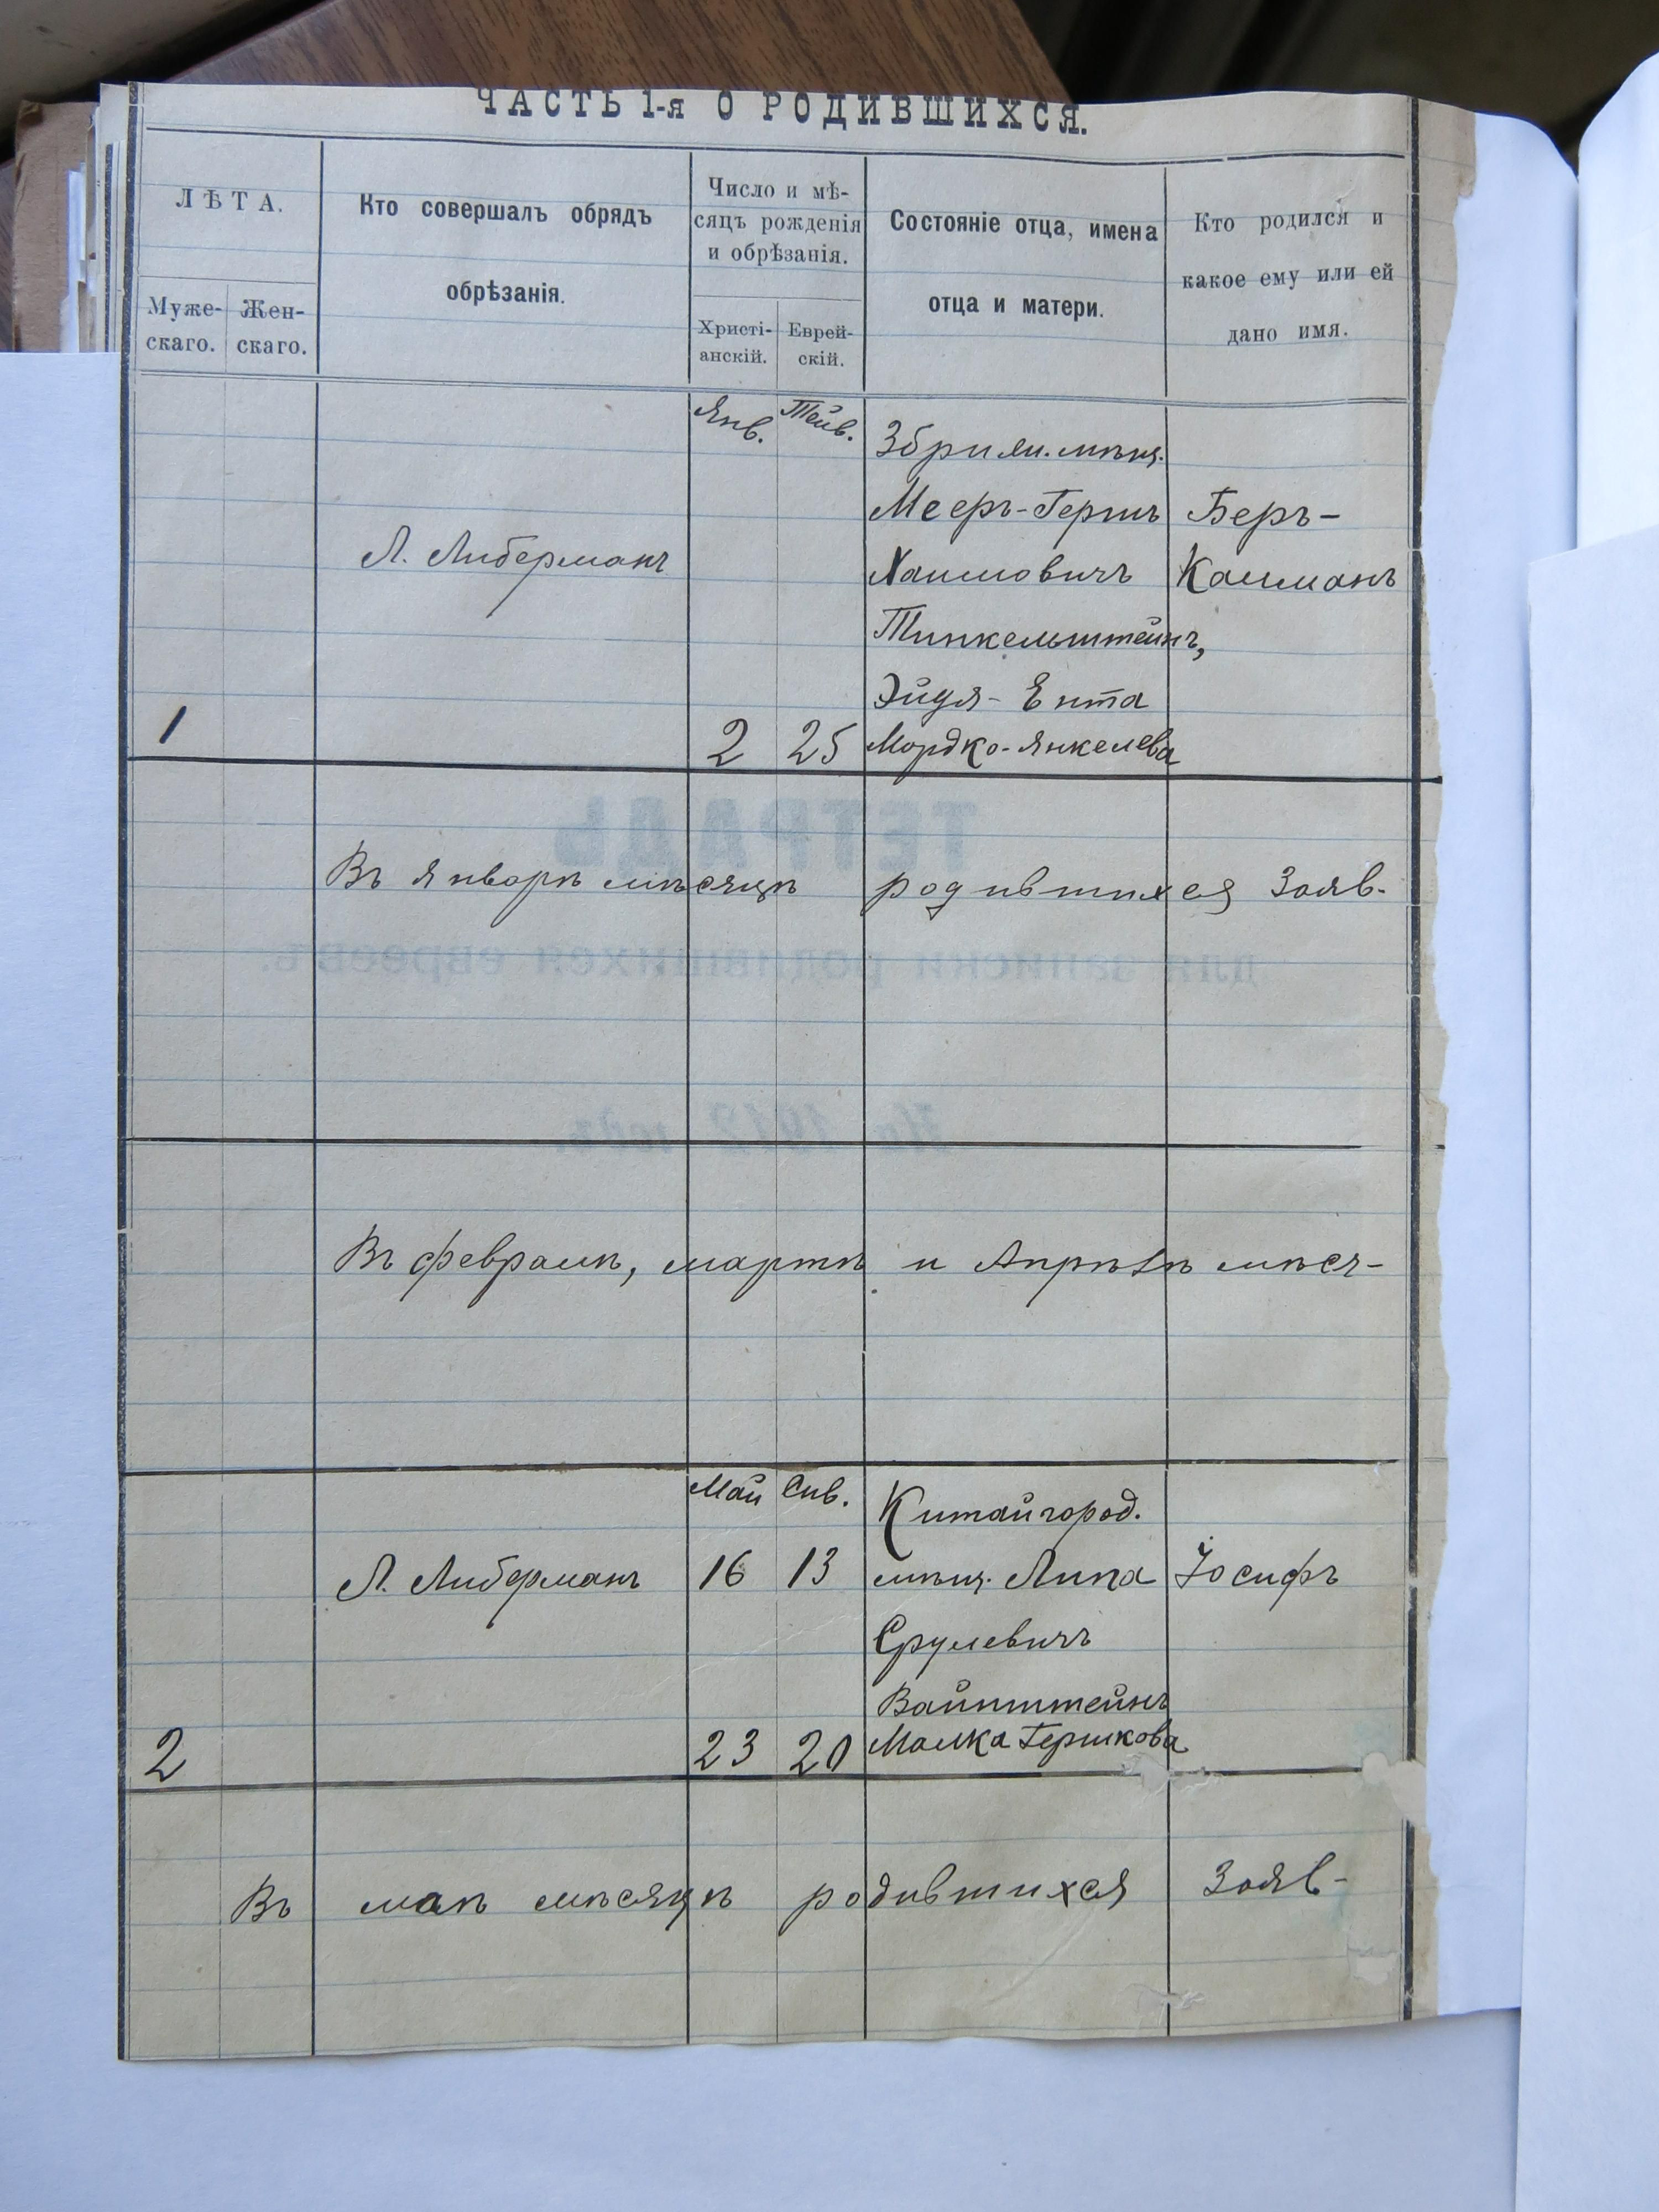 ЧАСТЬ 1-я О РОДИВШИХСЯ.
ЛѢТА.
Муже-
скаго.
Жен-
скаго.
Кто совершалъ обрядъ
обрѣзанія.
Число и мѣ-
сяцъ рожденія
и обрѣзанія.
Христі-
анскій.
Еврей-
скій.
Состояніе отца, имена
отца и матери.
Кто родился и
какое ему или ей
дано имя.
Янв. Тейв.
Збриж. мѣщ.
Мееръ-Гершъ Беръ-
Л. Либерманъ Хаимовичъ Калманъ
Тинкельштейнъ,
Эйдя-Ента
1 2 25 Мордко-Янкелева
ТЕТРАДЬ
Въ январѣ мѣсяцѣ родившихся Заяв-
для записки родившихся евреевъ.
На 1912 годъ.
Въ февралѣ, мартѣ и Апрѣлѣ мѣся-
Май Сив. Китайгород.
Л. Либерманъ 16 13 мѣщ. Липа Іосифъ
Срулевичъ
Вайнштейнъ
2 23 20 Малка Гершкова
Въ маѣ мѣсяцѣ родившихся Заяв-